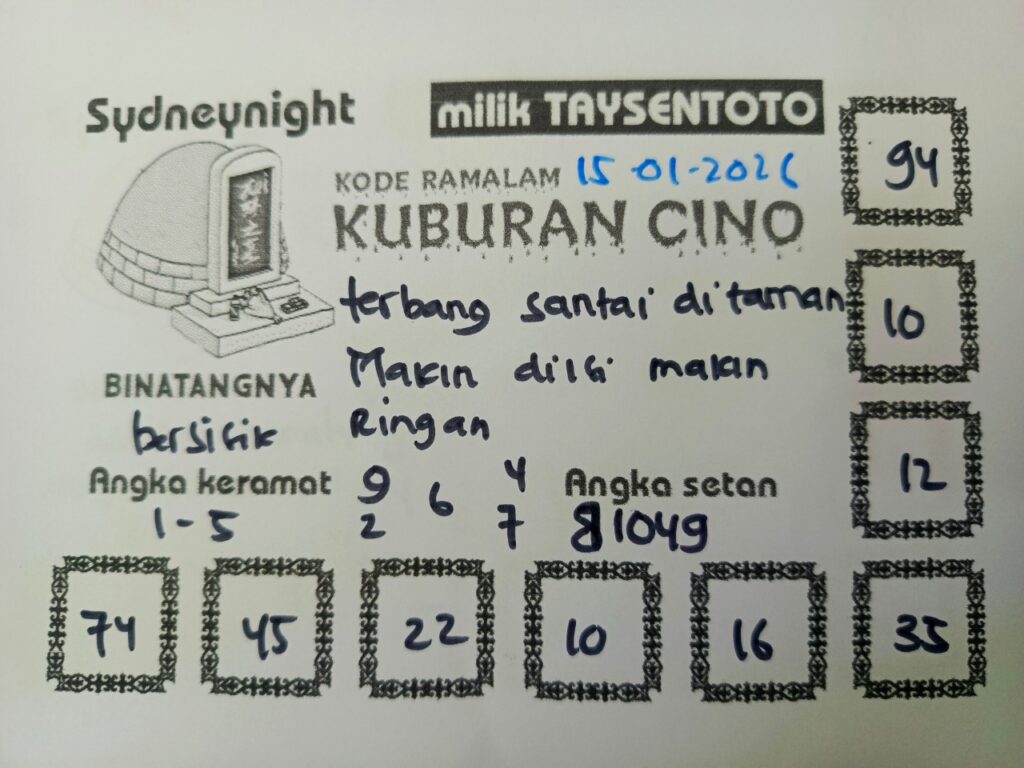 Sydneynight
milik TAYSENTOTO
KODE RAMALAM 15-01-2026
KUBURAN CINO
94
terbang santai di taman
10
Makin diisi makin
BINATANGNYA
Ringan
bersisik
12
Angka keramat
9 6 4
Angka setan
1-5
2 7
81049
74 45 22 10 16 35